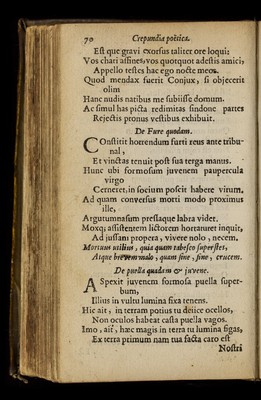 70 Crepundia poëtica.
Est que gravi exorsus taliter ore loqui:
Vos chari affines, vos quotquot adestis amici,
Appello testes hac ego nocte meos.
Quod mendax fuerit Conjux, si objecerit
olim
Hanc nudis natibus me subiisse domum.
Ac simul has picta redimitas sindone partes
Rejectis pronus vestibus exhibuit.
De Fure quodam.
COnstitit horrendum furti reus ante tribu-
nal,
Et vinctas tenuit post sua terga manus.
Hunc ubi formosum juvenem paupercula
virgo
Cerneret, in socium poscit habere virum.
Ad quam conversus morti modo proximus
ille,
Argutumnasum pressaque labra videt.
Moxq; assistentem lictorem hortaturet inquit,
Ad jussam propera, vivere nolo, necem.
Mortuus utilius, quia quam tabesco superstes,
Atque brevem malo, quam sine, sine, crucem.
De puella quadam & juvene.
ASpexit juvenem formosa puella super-
bum,
Illius in vultu lumina fixa tenens.
Hic ait, in terram potius tu deiice ocellos,
Non oculos habeat casta puella vagos.
Imo, ait, hæc magis in terra tu lumina figas,
Ex terra primum nam tua facta caro est
Nostri